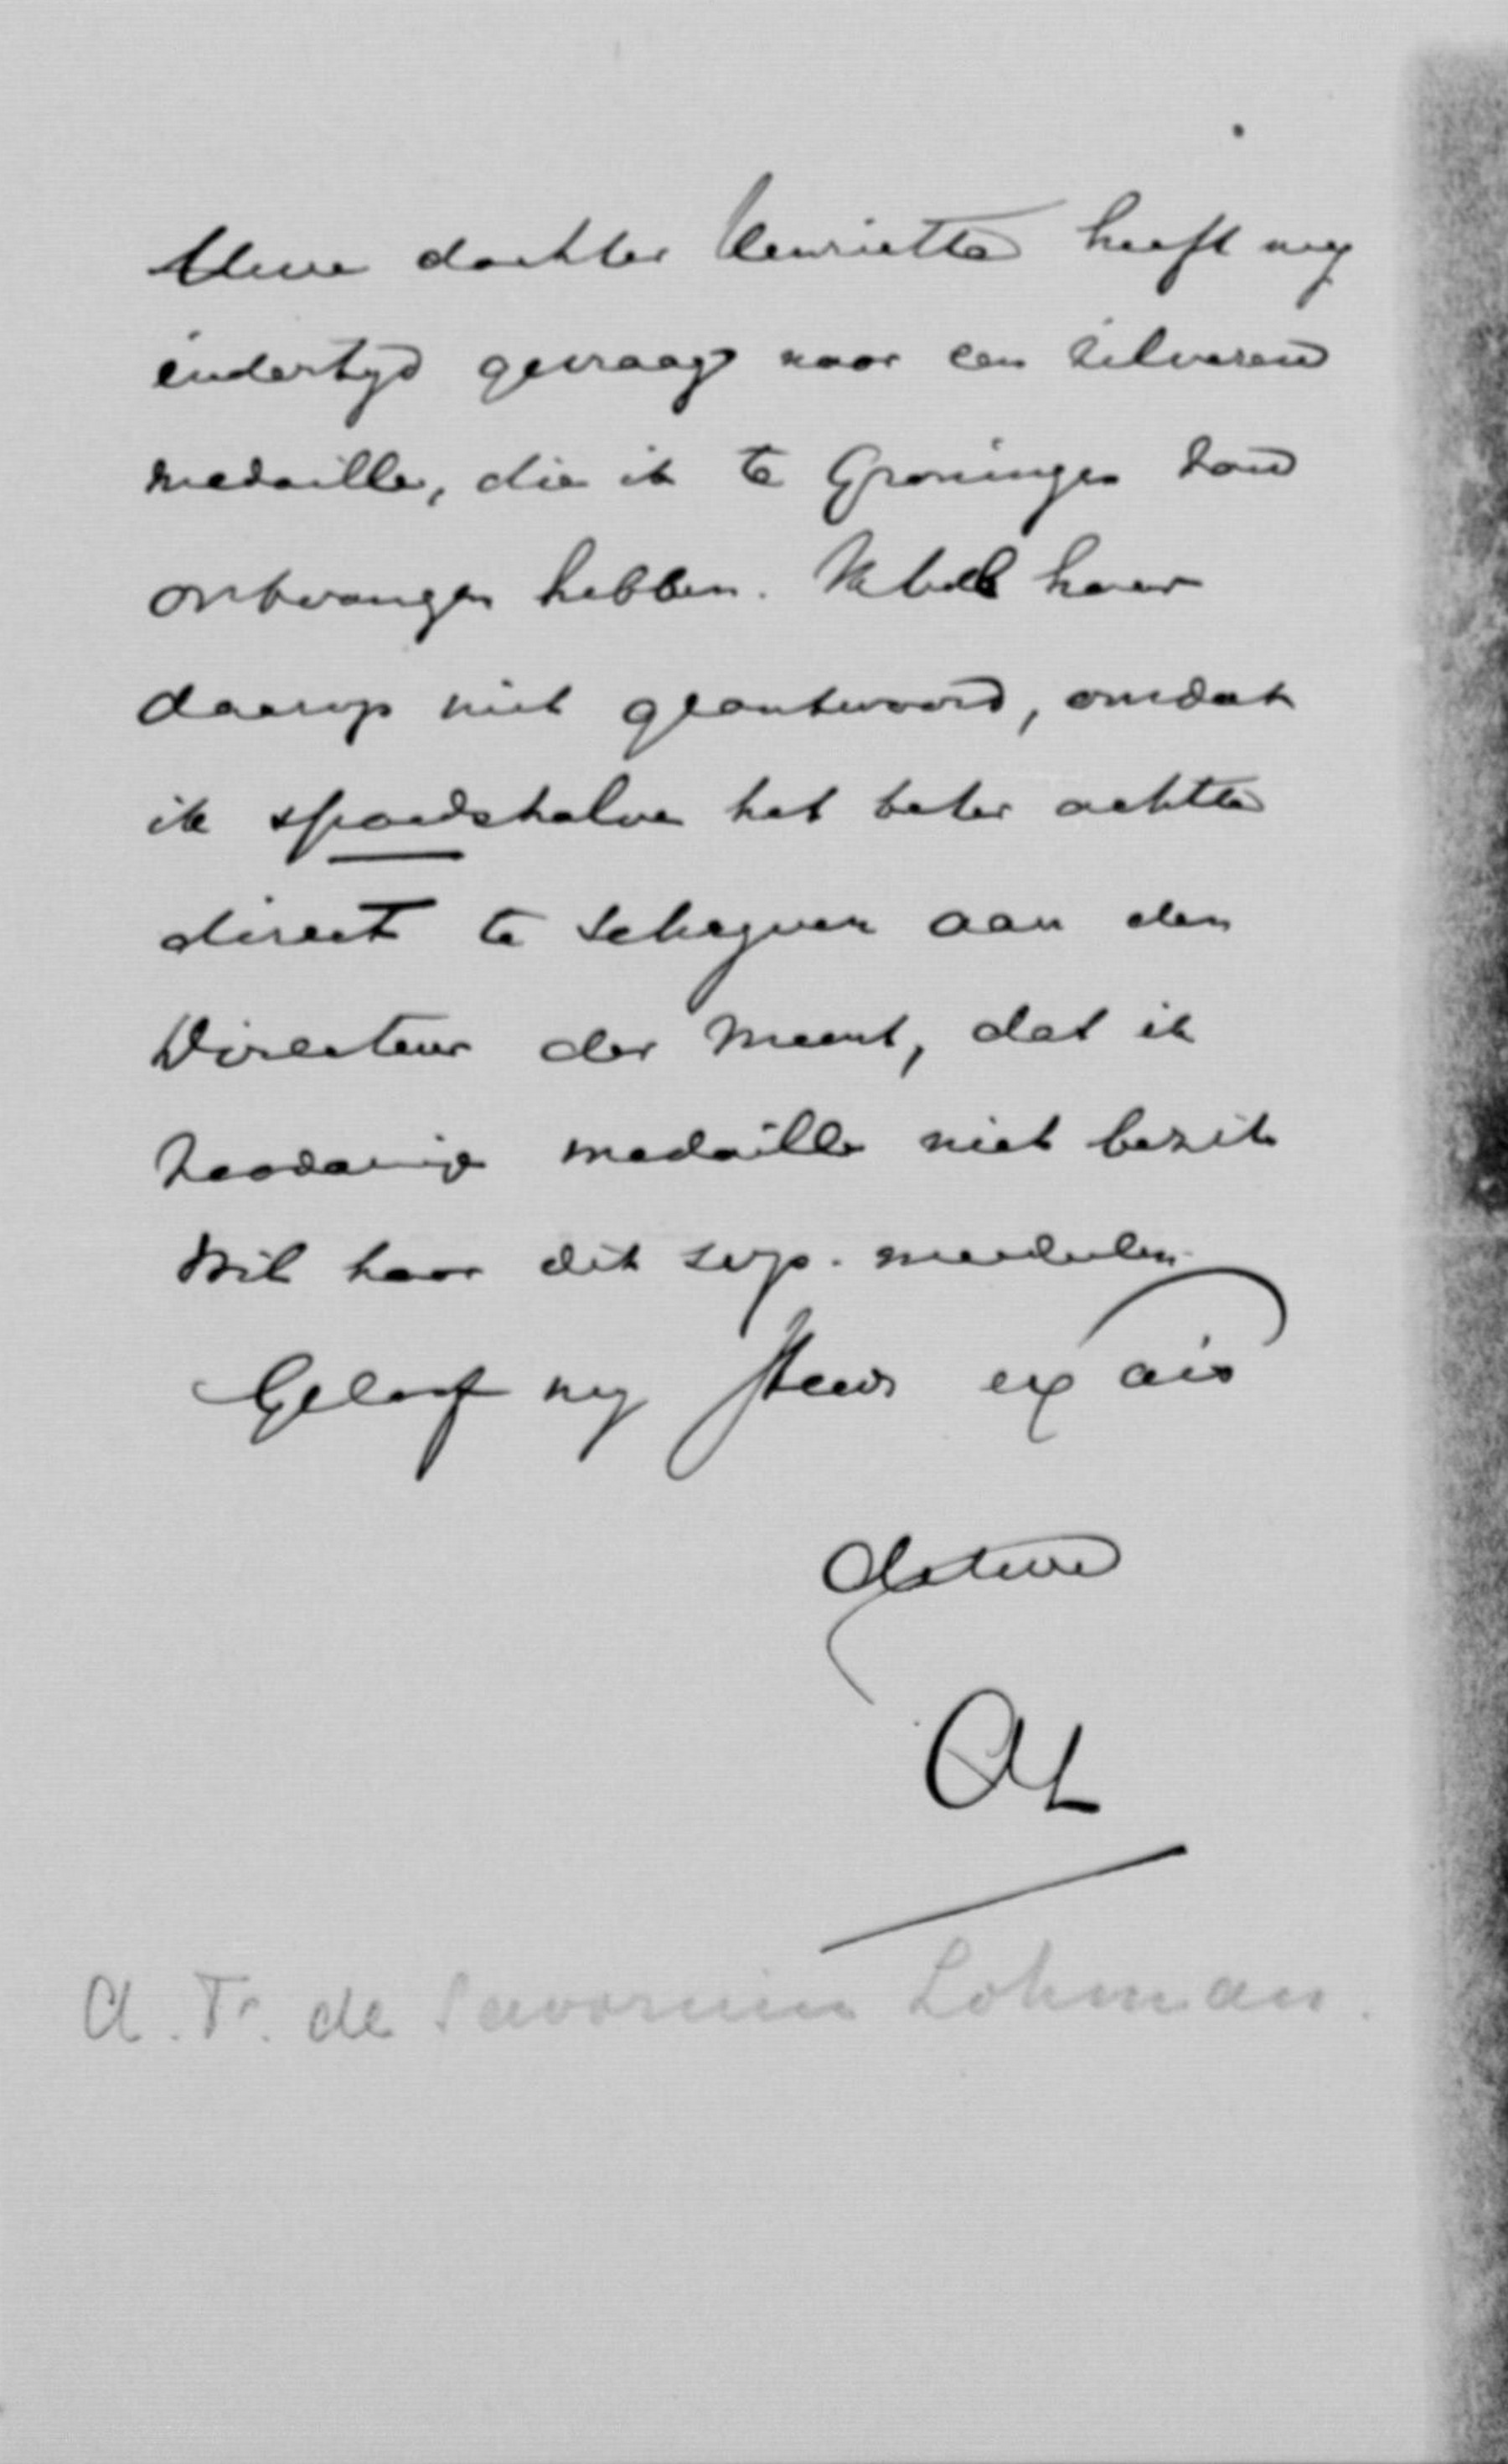 Uwe dochter Henriette heeft my
indertyd gevraagd naar een zilveren
medaille, die ik te Groningen zou
ontvangen hebben. Ik heb haar
daarop niet geantwoord, omdat
ik spoedshalve het beter achtte
direct te schryven aan den
Directeur der Munt, dat ik
zoodanige medaille niet bezit
Wil haar dit svp. mededeelen.
Geloof my steeds ex an
AL
A. F. de Savornin Lohman.